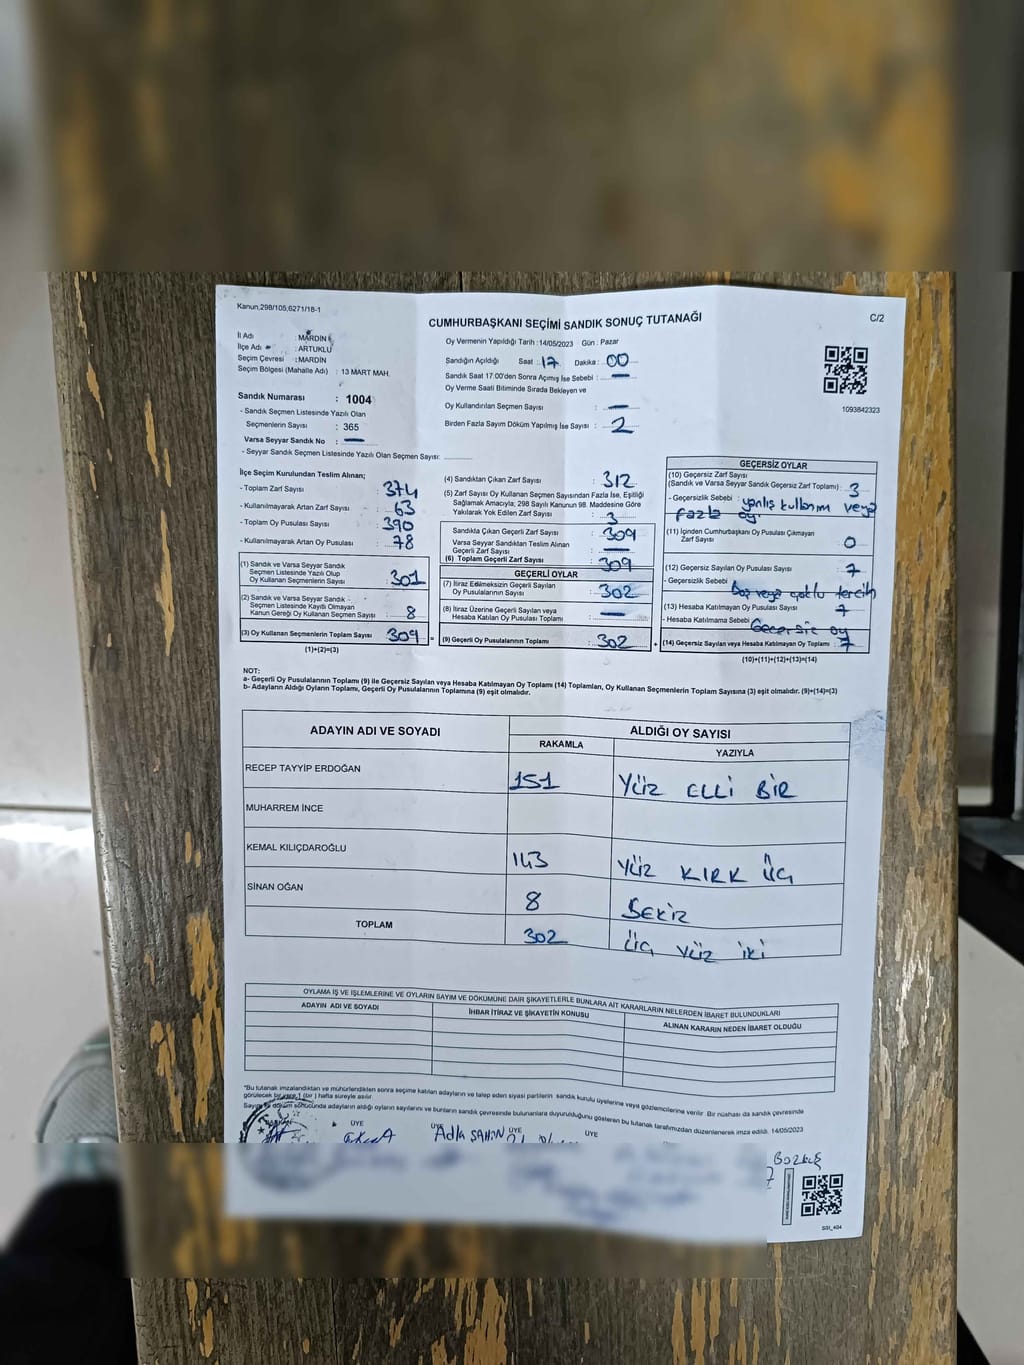 Kanun,298/105,6271/18-1
C/2
CUMHURBAŞKANI SEÇİMİ SANDIK SONUÇ TUTANAĞI
İl Adı : MARDİN
İlçe Adı : ARTUKLU
Seçim Çevresi : MARDİN
Seçim Bölgesi (Mahalle Adı) : 13 MART MAH.
Sandık Numarası : 1004
- Sandık Seçmen Listesinde Yazılı Olan
Seçmenlerin Sayısı : 365
Varsa Seyyar Sandık No : —
- Seyyar Sandık Seçmen Listesinde Yazılı Olan Seçmen Sayısı: ............
Oy Vermenin Yapıldığı Tarih :14/05/2023 Gün : Pazar
Sandığın Açıldığı Saat : 17 Dakika : 00
Sandık Saat 17:00'den Sonra Açılmış İse Sebebi : —
Oy Verme Saati Bitiminde Sırada Bekleyen ve
Oy Kullandırılan Seçmen Sayısı : —
Birden Fazla Sayım Döküm Yapılmış İse Sayısı : 2
1093842323
İlçe Seçim Kurulundan Teslim Alınan;
- Toplam Zarf Sayısı : 374
- Kullanılmayarak Artan Zarf Sayısı : 63
- Toplam Oy Pusulası Sayısı : 390
- Kullanılmayarak Artan Oy Pusulası : 78
(1) Sandık ve Varsa Seyyar Sandık
Seçmen Listesinde Yazılı Olup
Oy Kullanan Seçmenlerin Sayısı : 301
(2) Sandık ve Varsa Seyyar Sandık
Seçmen Listesinde Kayıtlı Olmayan
Kanun Gereği Oy Kullanan Seçmen Sayısı : 8
(3) Oy Kullanan Seçmenlerin Toplam Sayısı : 309 =
(1)+(2)=(3)
(4) Sandıktan Çıkan Zarf Sayısı : 312
(5) Zarf Sayısı Oy Kullanan Seçmen Sayısından Fazla İse, Eşitliği
Sağlamak Amacıyla, 298 Sayılı Kanunun 98. Maddesine Göre
Yakılarak Yok Edilen Zarf Sayısı : 3
Sandıkta Çıkan Geçerli Zarf Sayısı : 309
Varsa Seyyar Sandıktan Teslim Alınan
Geçerli Zarf Sayısı : —
(6) Toplam Geçerli Zarf Sayısı : 309
GEÇERLİ OYLAR
(7) İtiraz Edilmeksizin Geçerli Sayılan
Oy Pusulalarının Sayısı : 302
(8) İtiraz Üzerine Geçerli Sayılan veya
Hesaba Katılan Oy Pusulası Toplamı : —
(9) Geçerli Oy Pusulalarının Toplamı : 302 +
GEÇERSİZ OYLAR
(10) Geçersiz Zarf Sayısı
(Sandık ve Varsa Seyyar Sandık Geçersiz Zarf Toplamı) : 3
- Geçersizlik Sebebi : yanlış kullanım veya
fazla oy
(11) İçinden Cumhurbaşkanı Oy Pusulası Çıkmayan
Zarf Sayısı : 0
(12) Geçersiz Sayılan Oy Pusulası Sayısı : 7
- Geçersizlik Sebebi : boş veya çoklu tercih
(13) Hesaba Katılmayan Oy Pusulası Sayısı : 7
- Hesaba Katılmama Sebebi : Geçersiz oy
(14) Geçersiz Sayılan veya Hesaba Katılmayan Oy Toplamı : 7
(10)+(11)+(12)+(13)=(14)
NOT:
a- Geçerli Oy Pusulalarının Toplamı (9) ile Geçersiz Sayılan veya Hesaba Katılmayan Oy Toplamı (14) Toplamları, Oy Kullanan Seçmenlerin Toplam Sayısına (3) eşit olmalıdır. (9)+(14)=(3)
b- Adayların Aldığı Oyların Toplamı, Geçerli Oy Pusulalarının Toplamına (9) eşit olmalıdır.
ADAYIN ADI VE SOYADI
ALDIĞI OY SAYISI
RAKAMLA YAZIYLA
RECEP TAYYİP ERDOĞAN 151 YÜZ ELLİ BİR
MUHARREM İNCE
KEMAL KILIÇDAROĞLU 143 YÜZ KIRK ÜÇ
SİNAN OĞAN 8 SEKİZ
TOPLAM 302 ÜÇ YÜZ İKİ
OYLAMA İŞ VE İŞLEMLERİNE VE OYLARIN SAYIM VE DÖKÜMÜNE DAİR ŞİKAYETLERLE BUNLARA AİT KARARLARIN NELERDEN İBARET BULUNDUKLARI
ADAYIN ADI VE SOYADI İHBAR İTİRAZ VE ŞİKAYETİN KONUSU ALINAN KARARIN NEDEN İBARET OLDUĞU
*Bu tutanak imzalandıktan ve mühürlendikten sonra seçime katılan adayların ve talep eden siyasi partilerin sandık kurulu üyelerine veya gözlemcilerine verilir. Bir nüshası da sandık çevresinde
görülecek bir yere 1 (bir) hafta süreyle asılır.
Sayım ve döküm sonucunda adayların aldığı oyların sayılarını ve bunların sandık çevresinde bulunanlara duyurulduğunu gösteren bu tutanak tarafımızdan düzenlenerek imza edildi. 14/05/2023
ÜYE ÜYE ÜYE ÜYE
Adla ŞAHİN
SSI_404